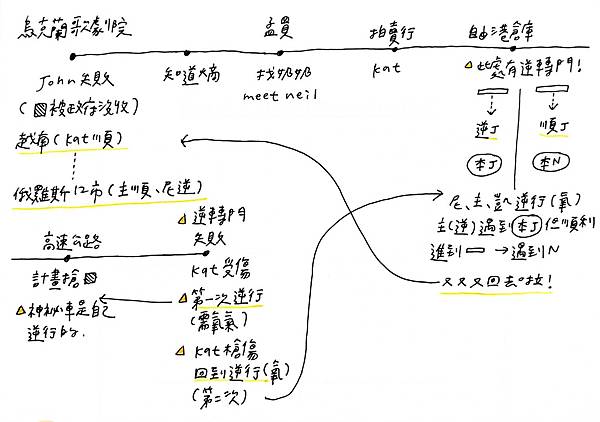 烏克蘭歌劇院
John失敗
(被政府沒收)
越南(kat順)
俄羅斯12市(主順、尼逆)
知道
孟買
找
meet neil
拍賣行
kat
自由港倉庫
此處有逆轉門!
逆J 順J
本J 本N
尼、主、凱逆行(氧)
主(逆)遇到本J但順利
進到 → 遇到N
又又又回去啦!
高速公路
計畫搶
神秘車是自己
逆行的.
逆轉門
失敗
Kat受傷
第一次逆行
(需氧氣)
Kat槍傷
回到逆行(氧)
(第二次)